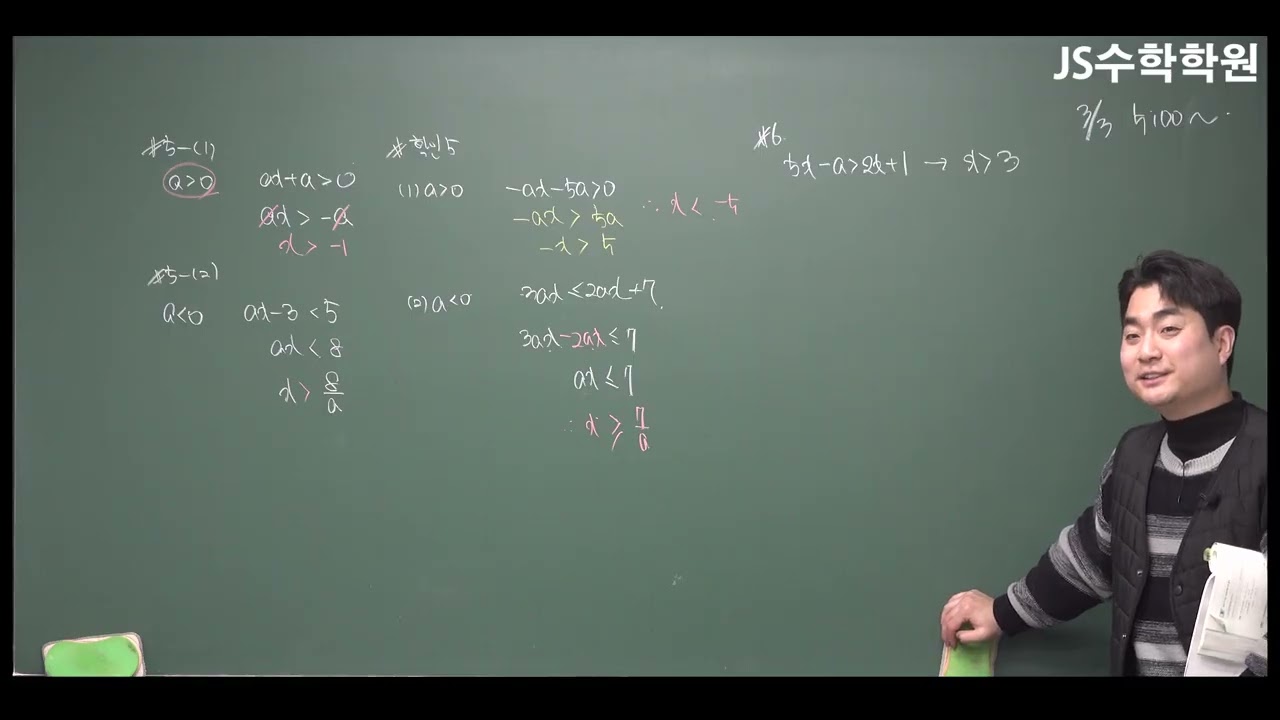 JS수학학원
3/3 5100~
#5-(1)
a>0
ax+a>0
ax > -a
x > -1
#5-(2)
a<0
ax-3 < 5
ax < 8
x > 8/a
# 확인 5
(1) a>0
-ax-5a>0
-ax > 5a
-x > 5
∴ x < -5
(2) a<0
3ax ≤ 2ax+7
3ax-2ax ≤ 7
ax ≤ 7
∴ x ≥ 7/a
#6.
5x-a>2x+1 → x>3